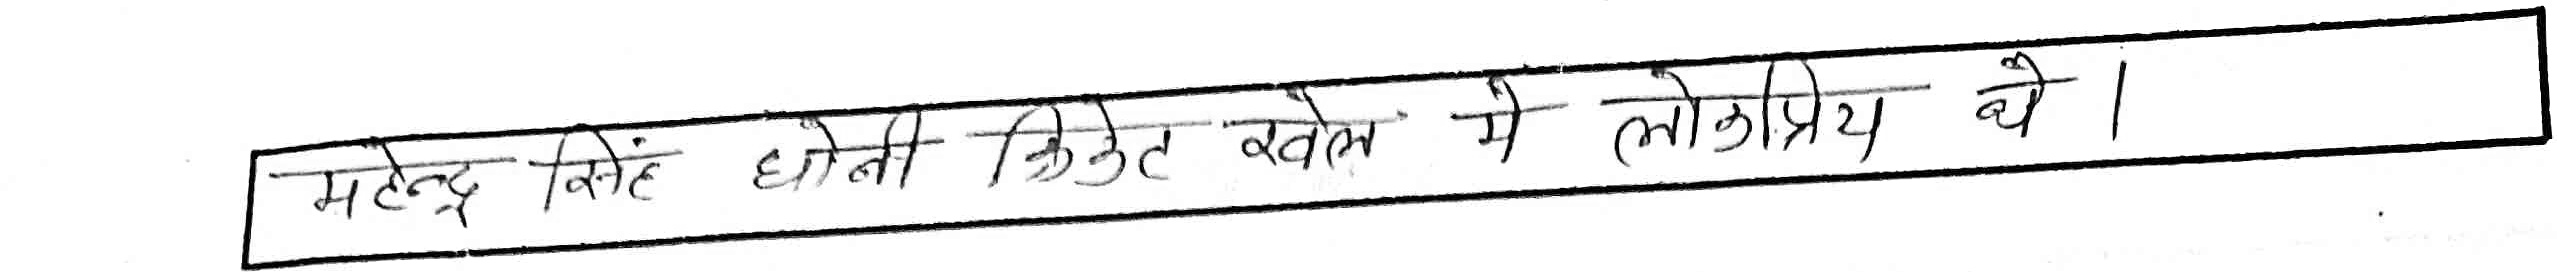 महेन्द्र सिंह धोनी क्रिकेट खेल मे लोकप्रिय थे ।